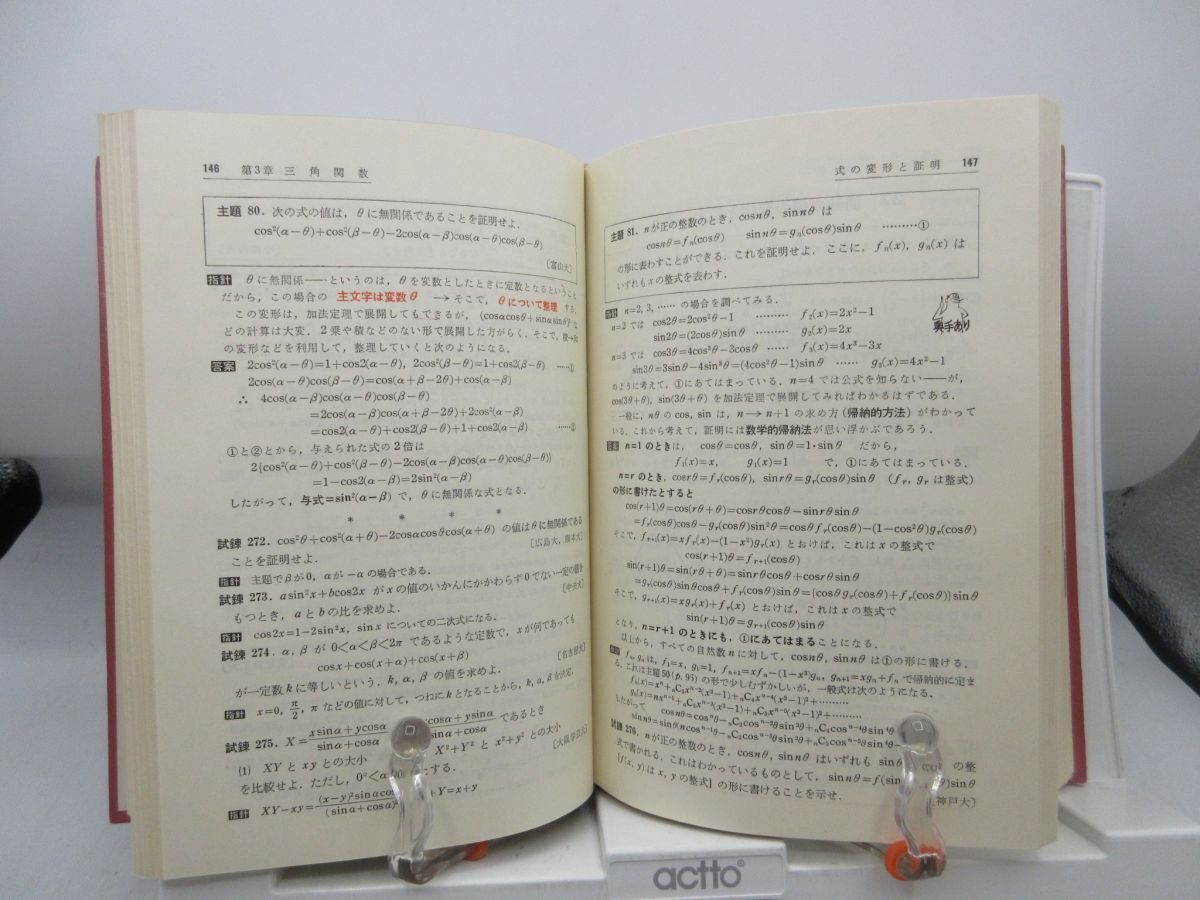 146 第3章 三角関数
主題 80. 次の式の値は，θに無関係であることを証明せよ．
cos²(α−θ)+cos²(β−θ)−2cos(α−β)cos(α−θ)cos(β−θ)
〔富山大〕
指針 θに無関係——というのは，θを変数としたときに定数となるということ
だから，この場合の 主文字は変数θ → そこで，θについて整理する．
この変形は，加法定理で展開してもできるが，(cosαcosθ+sinαsinθ)²な
どの計算は大変．2乗や積などのない形で展開した方がらく．そこで，積→和
の変形などを利用して，整理していくと次のようになる．
答案 2cos²(α−θ)=1+cos2(α−θ)，2cos²(β−θ)=1+cos2(β−θ) ……①
2cos(α−θ)cos(β−θ)=cos(α+β−2θ)+cos(α−β)
∴ 4cos(α−β)cos(α−θ)cos(β−θ)
=2cos(α−β)cos(α+β−2θ)+2cos²(α−β)
=cos2(α−θ)+cos2(β−θ)+1+cos2(α−β) ……②
①と②とから，与えられた式の2倍は
2{cos²(α−θ)+cos²(β−θ)−2cos(α−β)cos(α−θ)cos(β−θ)}
=1−cos2(α−β)=2sin²(α−β)
したがって，与式=sin²(α−β)で，θに無関係な式となる．
* * * *
試錬 272. cos²θ+cos²(α+θ)−2cosαcosθcos(α+θ) の値はθに無関係である
ことを証明せよ． 〔広島大，熊本大〕
指針 主題でβが0，αが−αの場合である．
試錬 273. asin²x+bcos2x がxの値のいかんにかかわらず0でない一定の値を
もつとき，aとbの比を求めよ． 〔中央大〕
指針 cos2x=1−2sin²x，sinxについての二次式になる．
試錬 274. α，βが0<α<β<2πであるような定数で，xが何であっても
cosx+cos(x+α)+cos(x+β)
が一定数kに等しいという．k，α，βの値を求めよ． 〔名古屋大〕
指針 x=0，π/2，πなどの値に対して，つねにkとなることから，k，α，βを決定．
試錬 275. X=(xsinα+ycosα)/(sinα+cosα) cosα+ysinα +cosα であるとき
(1) XYとxyとの大小 X²+Y²とx²+y²との大小
を比較せよ．ただし，0°<α 0°とする． 〔大阪学芸大〕
指針 XY−xy=(x−y)²sinαcos /(sinα+cosα)² +Y=x+y
式の変形と証明 147
主題 81. nが正の整数のとき，cosnθ，sinnθは
cosnθ=fn(cosθ) sinnθ=gn(cosθ)sinθ ………①
の形に表わすことができる．これを証明せよ．ここに，fn(x)，gn(x)は
いずれもxの整式を表わす．
指針 n=2, 3, …… の場合を調べてみる．
奥手あり
n=2では cos2θ=2cos²θ−1 ……… f₂(x)=2x²−1
sin2θ=(2cosθ)sinθ ……… g₂(x)=2x
n=3では cos3θ=4cos³θ−3cosθ …… f₃(x)=4x³−3x
sin3θ=3sinθ−4sin³θ=(4cos²θ−1)sinθ …… g₃(x)=4x²−1
のように考えて，①にあてはまっている．n=4では公式を知らない——が，
cos(3θ+θ)，sin(3θ+θ)を加法定理で展開してみればわかるはずである．
一般に，nθのcos，sinは，n→n+1の求め方(帰納的方法)がわかって
いる．これから考えて，証明には数学的帰納法が思い浮かぶであろう．
答案 n=1のときは，cosθ=cosθ，sinθ=1·sinθ だから，
f₁(x)=x， g₁(x)=1 で，①にあてはまっている．
n=rのとき，cosrθ=fr(cosθ)，sinrθ=gr(cosθ)sinθ (fr，grは整式)
の形に書けたとすると
cos(r+1)θ=cos(rθ+θ)=cosrθcosθ−sinrθsinθ
=fr(cosθ)cosθ−gr(cosθ)sin²θ=cosθfr(cosθ)−(1−cos²θ)gr(cosθ)
そこで，fr+1(x)=xfr(x)−(1−x²)gr(x)とおけば，これはxの整式で
cos(r+1)θ=fr+1(cosθ)
sin(r+1)θ=sin(rθ+θ)=sinrθcosθ+cosrθsinθ
=gr(cosθ)sinθcosθ+fr(cosθ)sinθ={cosθgr(cosθ)+fr(cosθ)}sinθ
そこで，gr+1(x)=xgr(x)+fr(x)とおけば，これはxの整式で
sin(r+1)θ=gr+1(cosθ)sinθ
となり，n=r+1のときにも，①にあてはまることになる．
以上から，すべての自然数nに対して，cosnθ，sinnθは①の形に書ける．
fn, gnは，f₁=x，g₁=1，fn+1=xfn−(1−x²)gn，gn+1=xgn+fnで帰納的に定ま
る．これは主題50(p.95)の形で少しむずかしいが，一般式は次のようになる．
fn(x)=xⁿ+nC₂xⁿ⁻²(x²−1)+nC₄xⁿ⁻⁴(x²−1)²+………
gn(x)=nxⁿ⁻¹+nC₃xⁿ⁻³(x²−1)+nC₅xⁿ⁻⁵(x²−1)²+………
したがって cosnθ=cosⁿθ−nC₂cosⁿ⁻²θsin²θ+nC₄cosⁿ⁻⁴θsin⁴θ−
sinnθ=sinθ(ncosⁿ⁻¹θ−nC₃cosⁿ⁻³θsin²θ+nC₅cosⁿ⁻⁵θsin⁴θ−
試錬 276. nが正の整数のとき，cosnθ，sinnθはいずれもsinθ の整
式で書かれる．これはわかっているものとして，sinnθ=f(sin θ)sinθ
[f(x, y)はx, yの整式]の形に書けることを示せ． 神戸大〕
actto